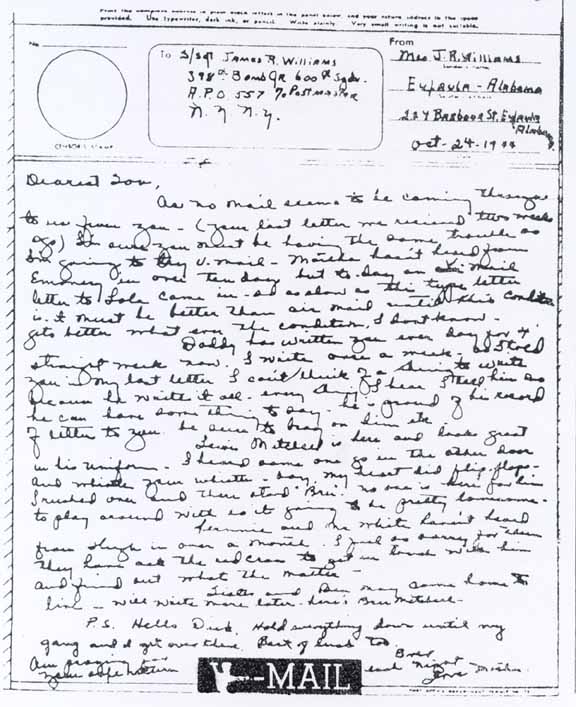 Print the complete address in plain block letters in the panel below, and your return address in the space
provided. Use typewriter, dark ink, or pencil. Write plainly. Very small writing is not suitable.
No.
CENSOR'S STAMP
To S/Sgt James R. Williams
398th Bomb GR 600th Sqdn.
A.P.O. 557 % Postmaster
N. Y. N. Y.
From
Mrs J. R. Williams
Eufaula - Alabama
224 Barbour St, Eufaula
Alabama
Oct - 24 - 1944
Dearest Son,
As no mail seems to be coming through
to us from you - (your last letter we recieved two weeks
ago) I'm sure you must be having the same trouble so
I'm going to try V. mail - Martha hasn't heard from
Emmory in over ten days but to-day an mail
letter to Lola came in - so as slow as this type letter
is it must be better than air mail until this condition
gets better what ever the condition, I don't know -
Daddy has written you ever day for 4
straight weeks now. I write once a week - as I told
you in my last letter I can't think of a thing to write
because he writes it all - every thing I hear I tell him so
he can have something to say - he is proud of his record
of letters to you. be sure to brag on him etc
Mitchell is here and looks great
in his uniform - I heard some one go in the other door
and whistle your whistle - boy, my heart did flip-flops -
I rushed over and there stood Bru. no one is here for him
to play around with so it going to be pretty lonesome -
and Mr White haven't heard
from Hugh in over a month. I feel so sorry for them
They have ask the red cross to get in touch with him
and find out what the matter -
Sister and Ben may come home to
- will write more later - here's Bru Mitchell -
P.S. Hello Dick. Hold everything down until my
gang and I get over there. Best of luck too.
Bru
and
Love Mother
V--MAIL